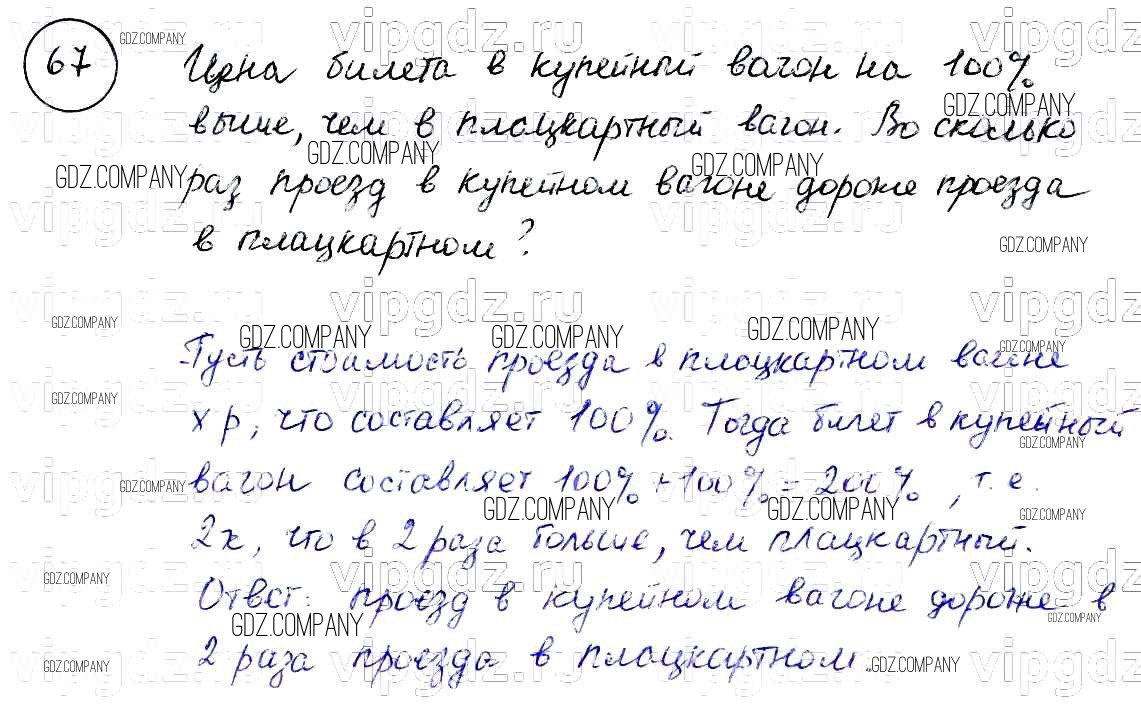 67
Цена билета в купейный вагон на 100%
выше, чем в плацкартный вагон. Во сколько
раз проезд в купейном вагоне дороже проезда
в плацкартном?
Пусть стоимость проезда в плацкартном вагоне
x р, что составляет 100%. Тогда билет в купейный
вагон составляет 100% + 100% = 200%, т.е.
2x, что в 2 раза больше, чем плацкартный.
Ответ: проезд в купейном вагоне дороже в
2 раза проезда в плацкартном.
GDZ.COMPANY
vipgdz.ru